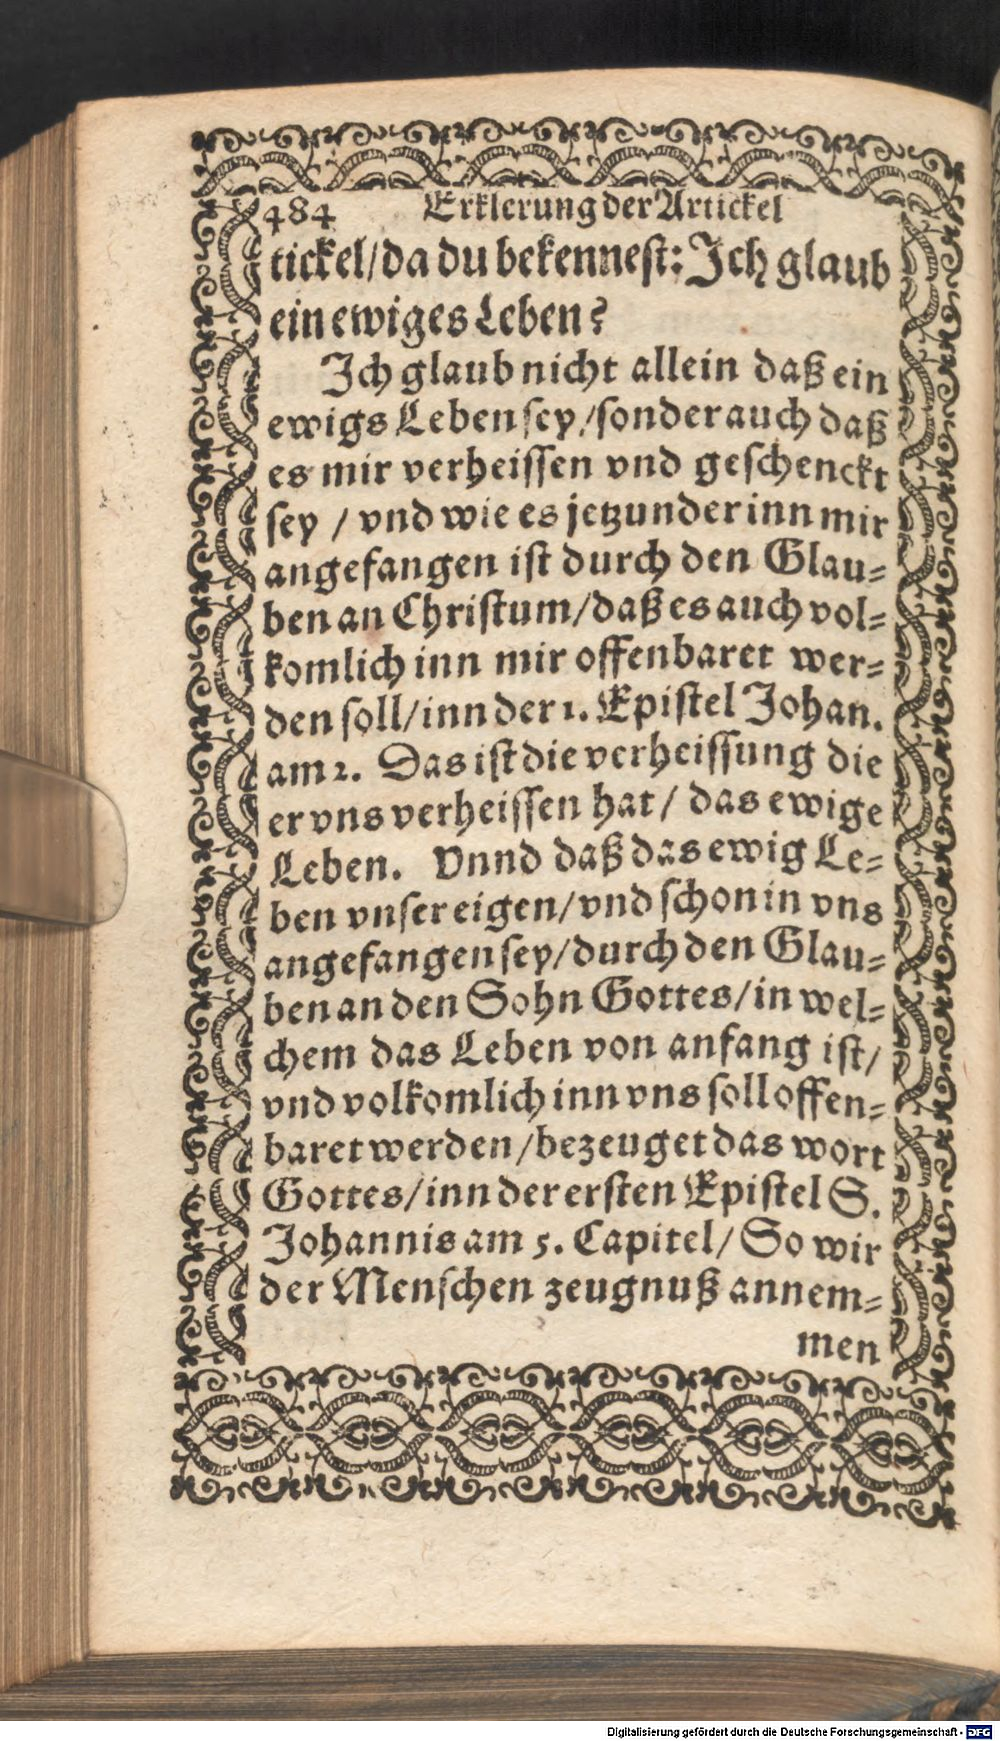 484 Erklerung der Artickel
tickel/da du bekennest: Ich glaub
ein ewiges Leben?
Ich glaub nicht allein daß ein
ewigs Leben sey/sonder auch daß
es mir verheissen vnd geschenckt
sey / vnd wie es jetzunder inn mir
angefangen ist durch den Glau-
ben an Christum/daß es auch vol-
komlich inn mir offenbaret wer-
den soll/inn der 1. Epistel Johan.
am 2. Das ist die verheissung die
er vns verheissen hat/ das ewige
Leben. Vnnd daß das ewig Le-
ben vnser eigen/vnd schon in vns
angefangen sey/durch den Glau-
ben an den Sohn Gottes/in wel-
chem das Leben von anfang ist/
vnd volkomlich inn vns soll offen-
baret werden/bezeuget das wort
Gottes/inn der ersten Epistel S.
Johannis am 5. Capitel/ So wir
der Menschen zeugnuß annem-
men
Digitalisierung gefördert durch die Deutsche Forschungsgemeinschaft - DFG